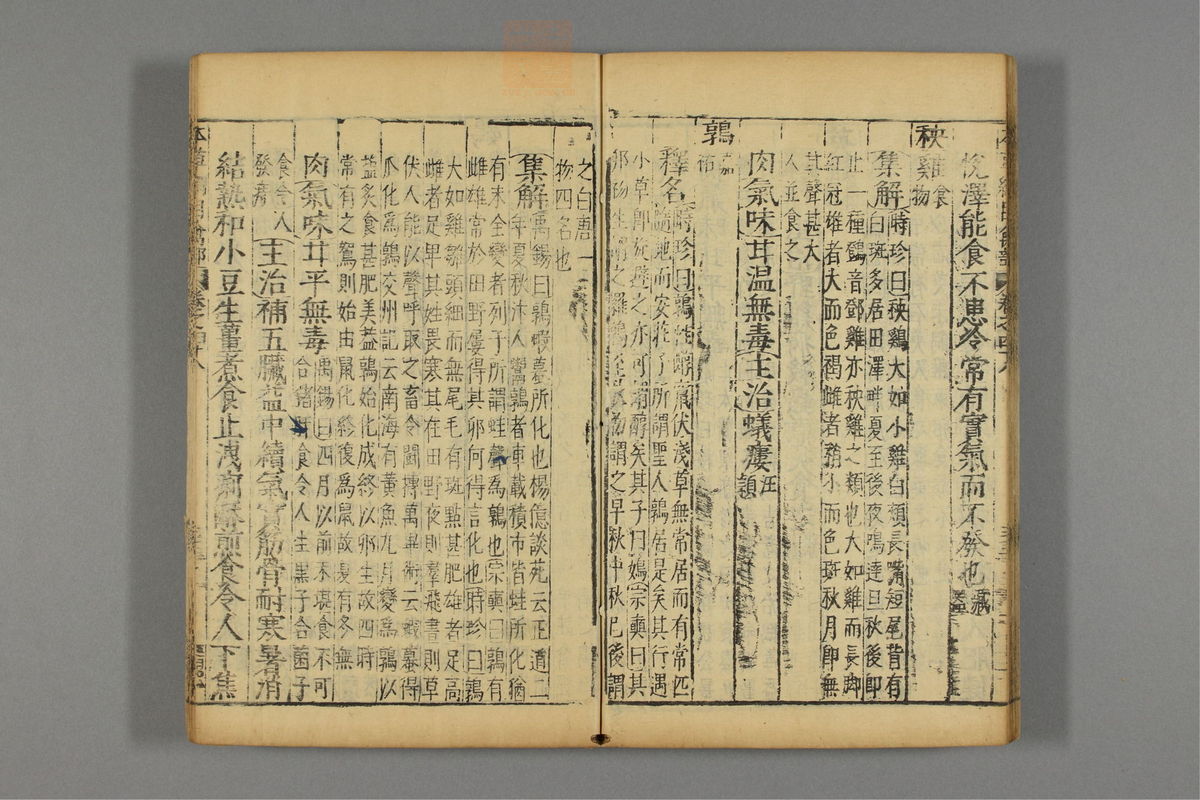 悅澤能食不患冷常有實氣而不發也
秧雞食物
集解時珍曰秧雞大如小雞白頰長嘴短尾背有
白斑多居田澤畔夏至後夜鳴達旦秋後即
止一種鷄音鄧雞亦秧雞之類也大如雞而長脚
紅冠雄者大而色褐雌者稍小而色斑秋月即無
其聲甚大
人並食之
肉氣味甘温無毒主治蟻瘻汪頴
鶉嘉祐
釋名時珍曰鶉性醇竄伏淺草無常居而有常匹
隨地而安莊子所謂聖人鶉居是矣其行遇
小草即旋避之亦可謂醇矣其子曰鳼宗奭曰其
卵初生謂之羅鶉至秋初謂之早秋中秋已後謂
之白唐一
物四名也
集解禹錫曰鶉蝦蟇所化也楊億談苑云至道二
年夏秋汴人鬻鶉者車載積市皆蛙所化猶
有未全變者列子所謂蛙變為鶉也宗奭曰鶉有
雌雄常於田野屢得其卵何得言化也時珍曰鶉
大如雞雛頭細而無尾毛有斑點甚肥雄者足高
雌者足卑其性畏寒其在田野夜則羣飛晝則草
伏人能以聲呼取之畜令鬭摶萬畢術云蟈蟇得
瓜化為鶉交州記云南海有黃魚九月變為鶉以
盐炙食甚肥美葢鶉始化成終以卵生故四時
常有之鴽則始由鼠化終復為鼠故夏有冬無
肉氣味甘平無毒禹錫曰四月以前不堪食不可
合猪肝食令人生黑子合菌子
食令人
發痔主治補五臟益中續氣實筋骨耐寒暑消
結熱和小豆生薑煮食止洩痢酥煎食令人下焦